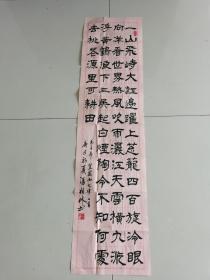 一山飛峙大江邊躍上葱蘢四百旋冷眼
向洋看世界熱風吹雨灑江天雲橫九派
浮黃鶴浪下三吳起白煙陶令不知何處
去桃花源里可耕田